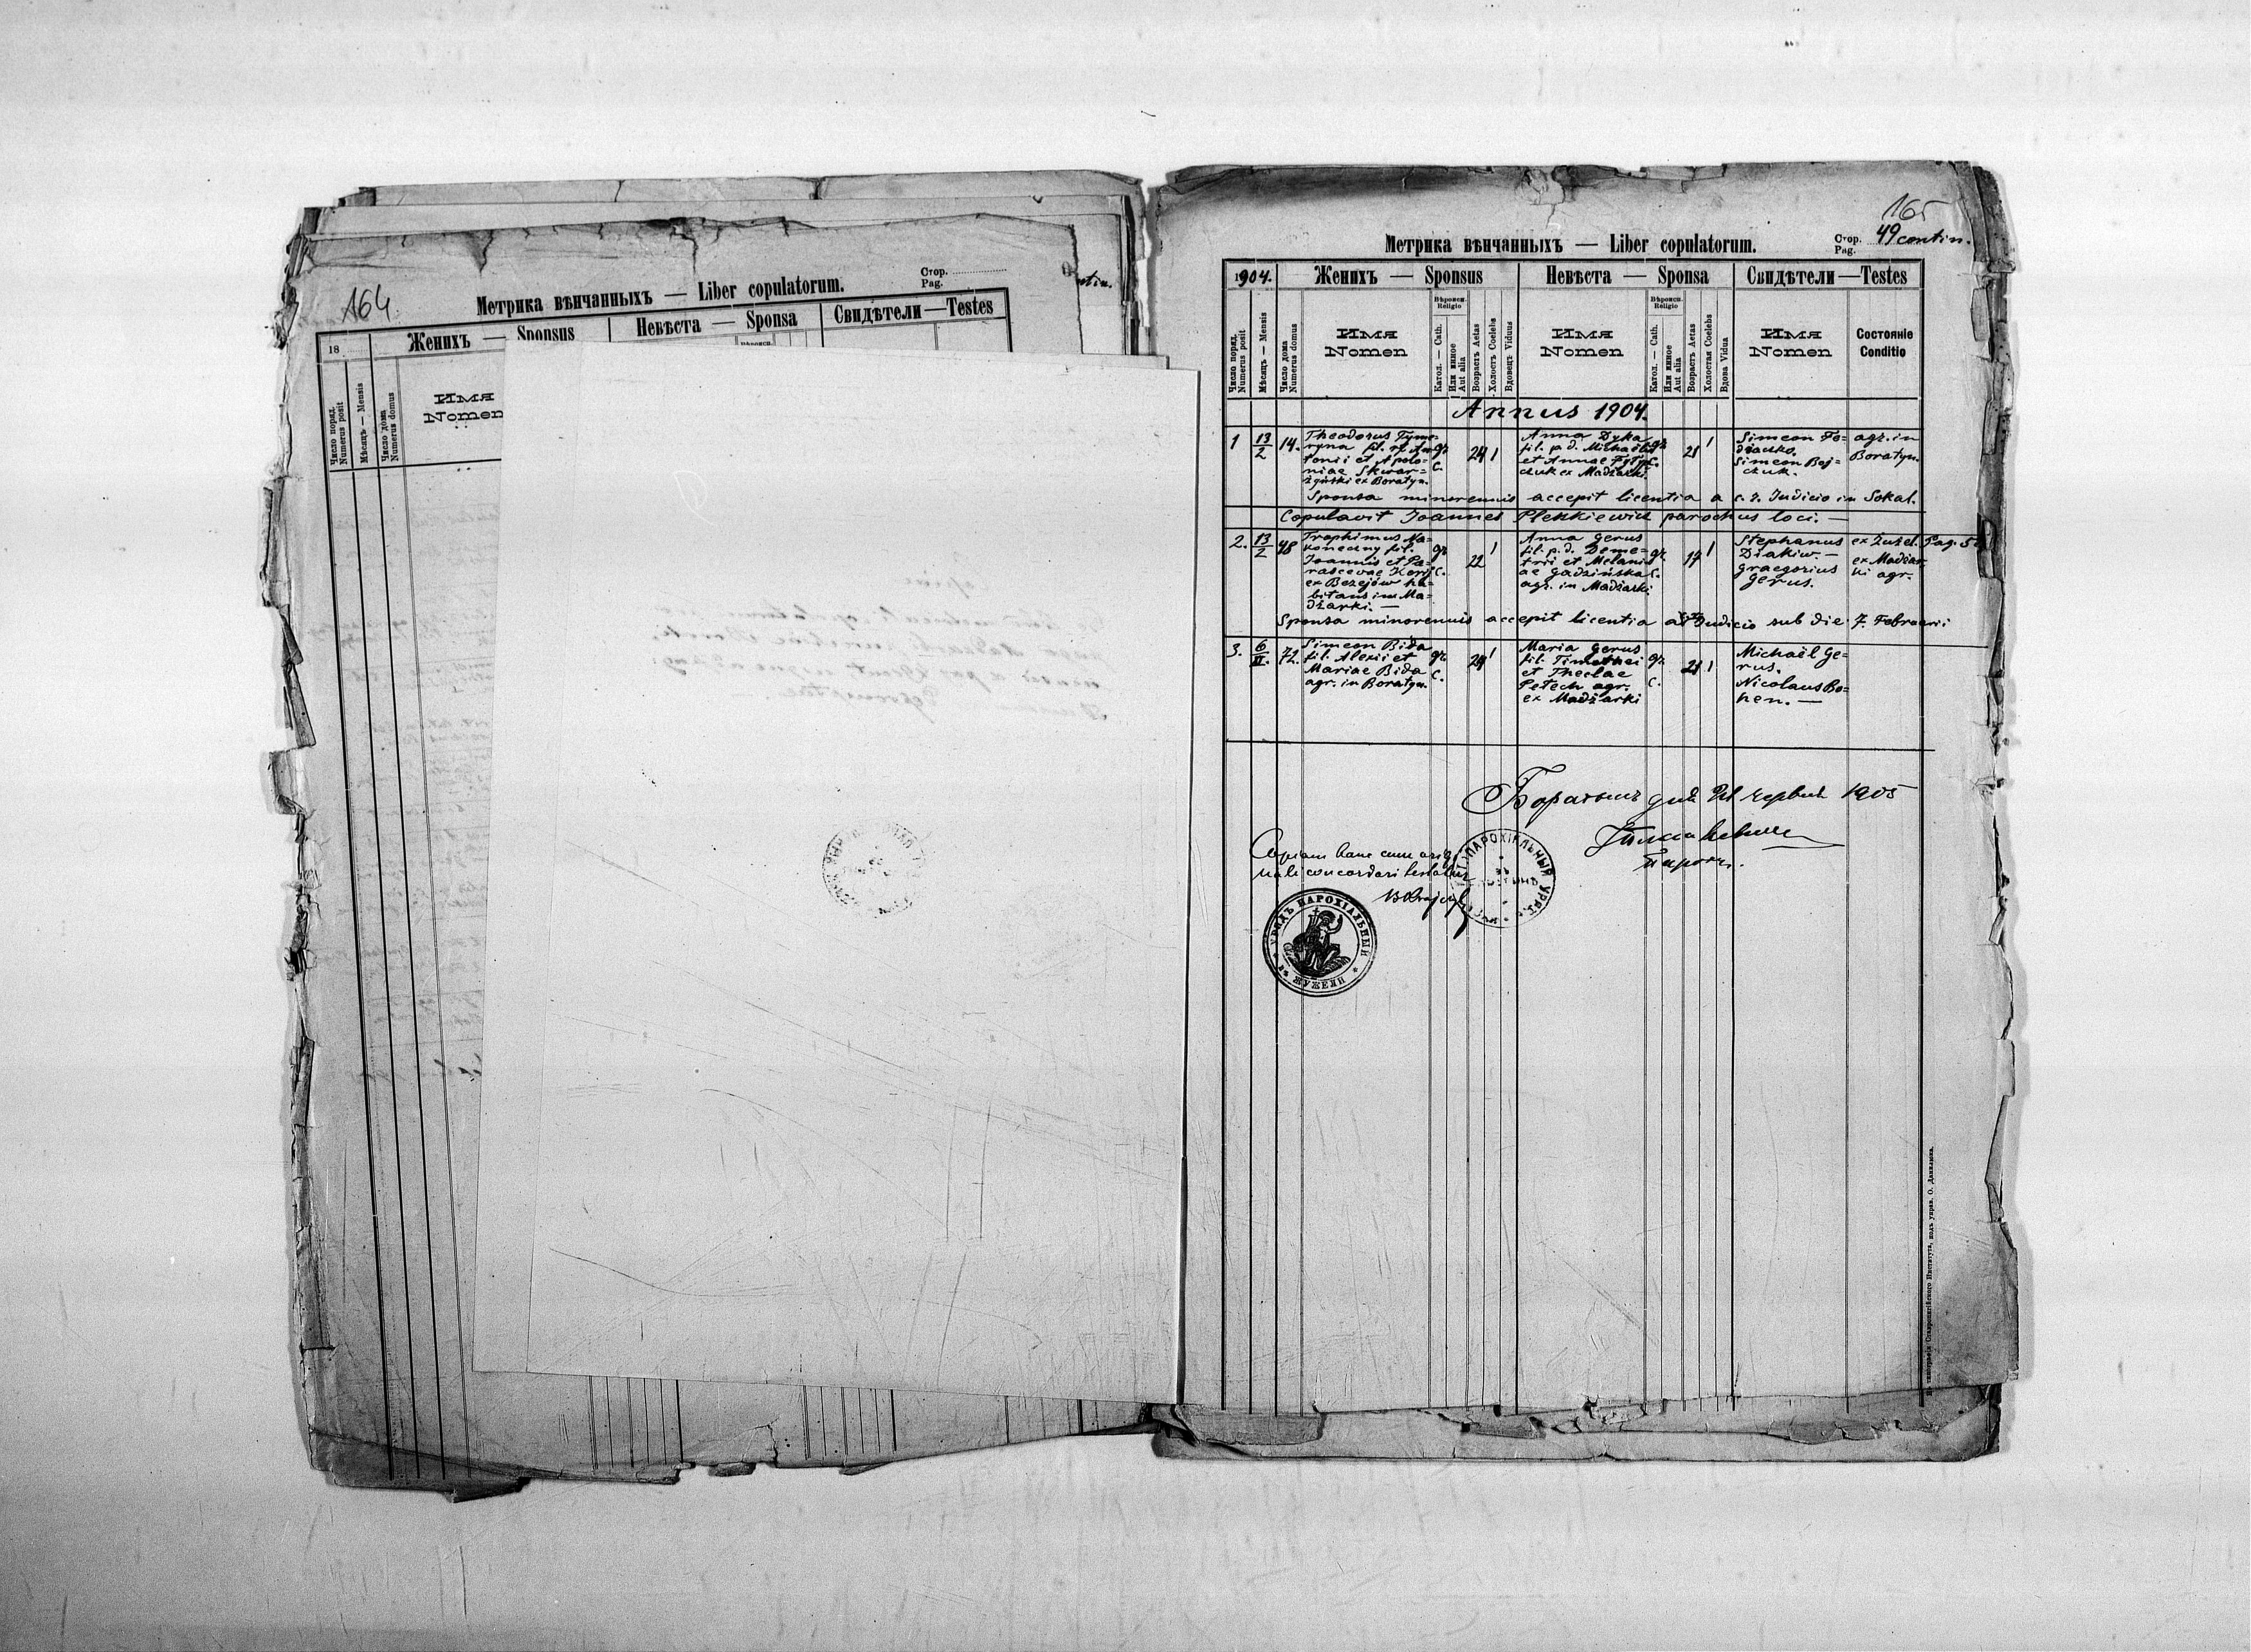 164
Метрика вѣнчанныхъ — Liber copulatorum.
Стор.
Pag.
18
Женихъ — Sponsus
Невѣста — Sponsa
Свидѣтели — Testes
Число поряд.
Numerus posit
Мѣсяць — Mensis
Число дома
Numerus domus
Имя
Nomen
165
Метрика вѣнчанныхъ — Liber copulatorum.
Стор.
Pag.
49 contin.
1904.
Женихъ — Sponsus
Невѣста — Sponsa
Свидѣтели — Testes
Число поряд.
Numerus posit
Мѣсяць — Mensis
Число дома
Numerus domus
Имя
Nomen
Вѣроисп.
Religio
Катол. — Cath.
Или инное
Aut alia
Возрастъ Aetas
Холостъ Coelebs
Вдовецъ Viduus
Имя
Nomen
Вѣроисп.
Religio
Катол. — Cath.
Или инное
Aut alia
Возрастъ Aetas
Холостая Coelebs
Вдова Vidua
Имя
Nomen
Состояніе
Conditio
Annus 1904.
1
13
2
14.
Theodorus Tyme-
fil.
tonii et Apolo-
niae Skwar-
ex Boratyn.
gr.
c.
24
1
Anna Dyka
fil. p. d. Michaëlis
et Annae
czuk ex Madżarki.
gr.
c.
21
1
Simeon Fe-
Simeon Boj-
czuk.
agr. in
Boratyn.
Sponsa minorennis accepit licentia a c. r. Judicio in Sokal.
Copulavit Joannes parochus loci. —
2.
13
2
48
Trophimus Na-
koneczny fil.
Joannis et Pa-
rascevae
ex Bezejów ha-
bitans in Ma-
dżarki. —
gr.
c.
22
1
Anna Gerus
fil. p. d. Deme-
trii et Melani-
ae Gadzińska
agr. in Madżarki
gr.
c.
17
1
Stephanus
Diakiw. —
Graegorius
Gerus.
ex Żużel.
ex Madżar-
ki agr.
Pag.
Sponsa minorennis accepit licentia a Judicio sub die 7. Februarii
3.
6
II.
72.
Simeon Bida
fil. Alexii et
Mariae Bida
agr. in Boratyn.
gr.
c.
24
1
Maria Gerus
fil. Timothei
et Theclae
Petech agr.
ex Madżarki
gr.
c.
21
1
Michaël Ge-
rus.
Nicolaus Bo-
hen. —
Боратынъ дня 21 червня 1905
Парохъ.
Copiam hanc cum origi-
nali concordari testatur
ПАРОХІЯЛЬНЫЙ УРЯД
УРЯДЪ ПАРОХІАЛЬНЫЙ
въ ЖУЖЕЛИ
Изъ типографіи Ставропигійского Института, подъ управ. О. Данилюка.